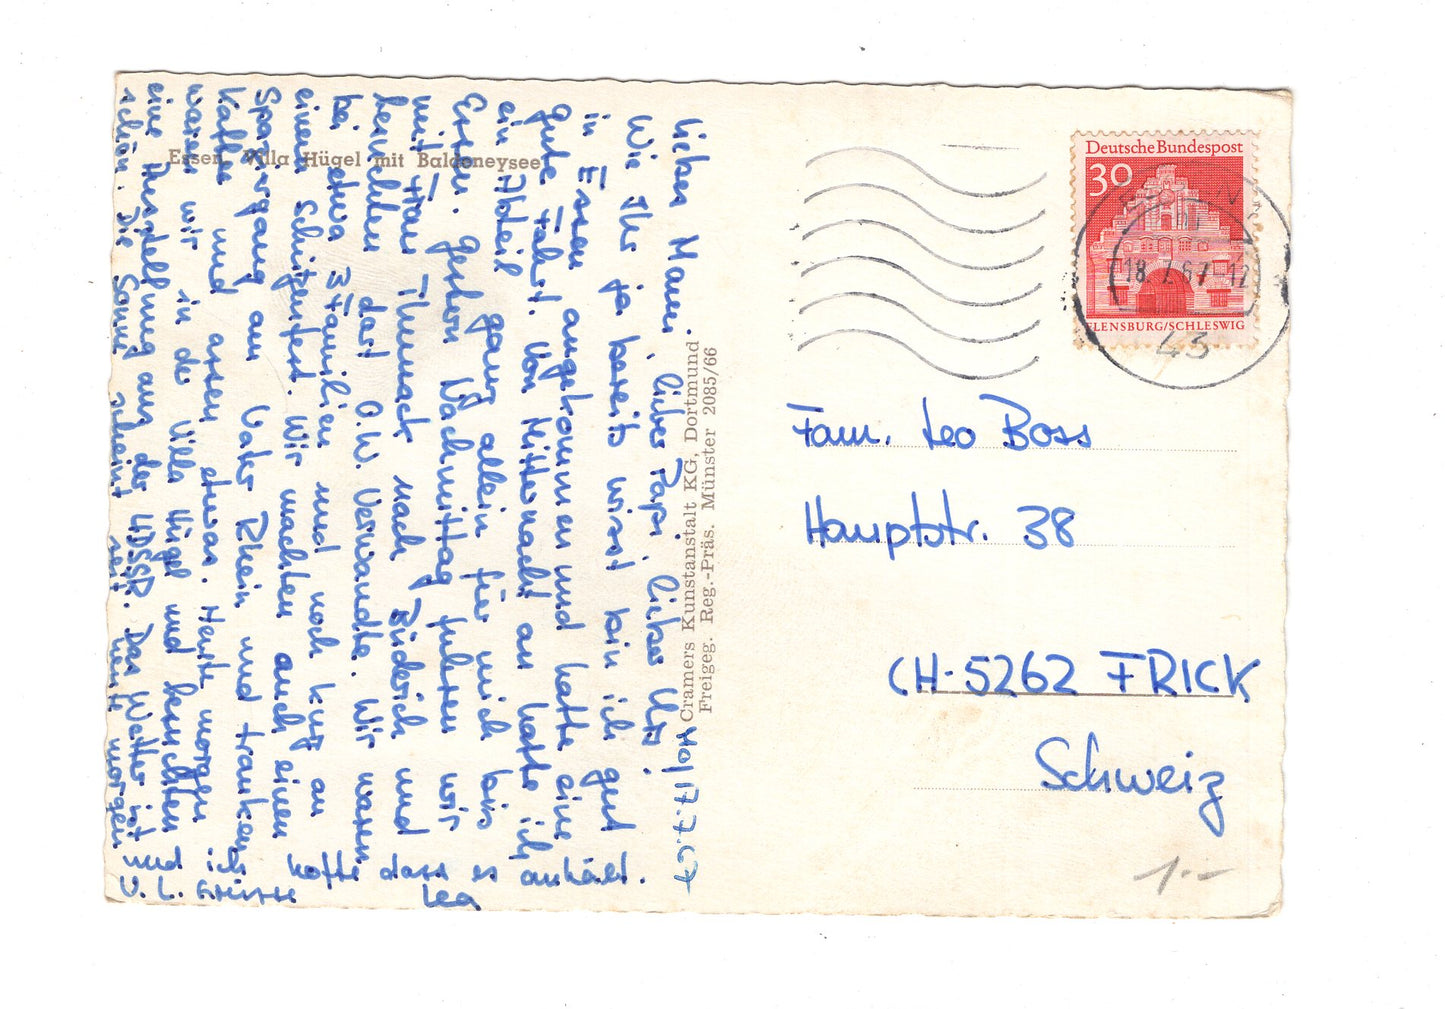 Essen, Villa Hügel mit Baldeneysee
Cramers Kunstanstalt KG, Dortmund
Freigeg. Reg.-Präs. Münster 2085/66
Mo/17.7.67
Liebes Mami, lieber Papi, lieber Urs!
Wie Ihr ja bereits wisst bin ich gut
in Essen angekommen und hatte eine
gute Fahrt. Von Mitternacht an hatte ich
ein Abteil ganz allein für mich bis
Essen. Gestern Nachmittag fuhren wir
mit Frau nach Büderich und
besuchten dort O.W. Verwandte. Wir waren
bei etwa 3 Familien und noch kurz an
einem Schützenfest. Wir machten auch einen
Spaziergang an Vater Rhein und tranken
Kaffee und assen etwas. Heute morgen
waren wir in der Villa Hügel und besuchten
eine Ausstellung aus der UDSSR. Das Wetter ist
schön. Die Sonne scheint seit heute morgen und
hoffe dass es anhält.
Lea
Deutsche Bundespost
30
FLENSBURG/SCHLESWIG
18.7.67-12
43
Fam. Leo Boss
Hauptstr. 38
CH-5262 FRICK
Schweiz
1.-